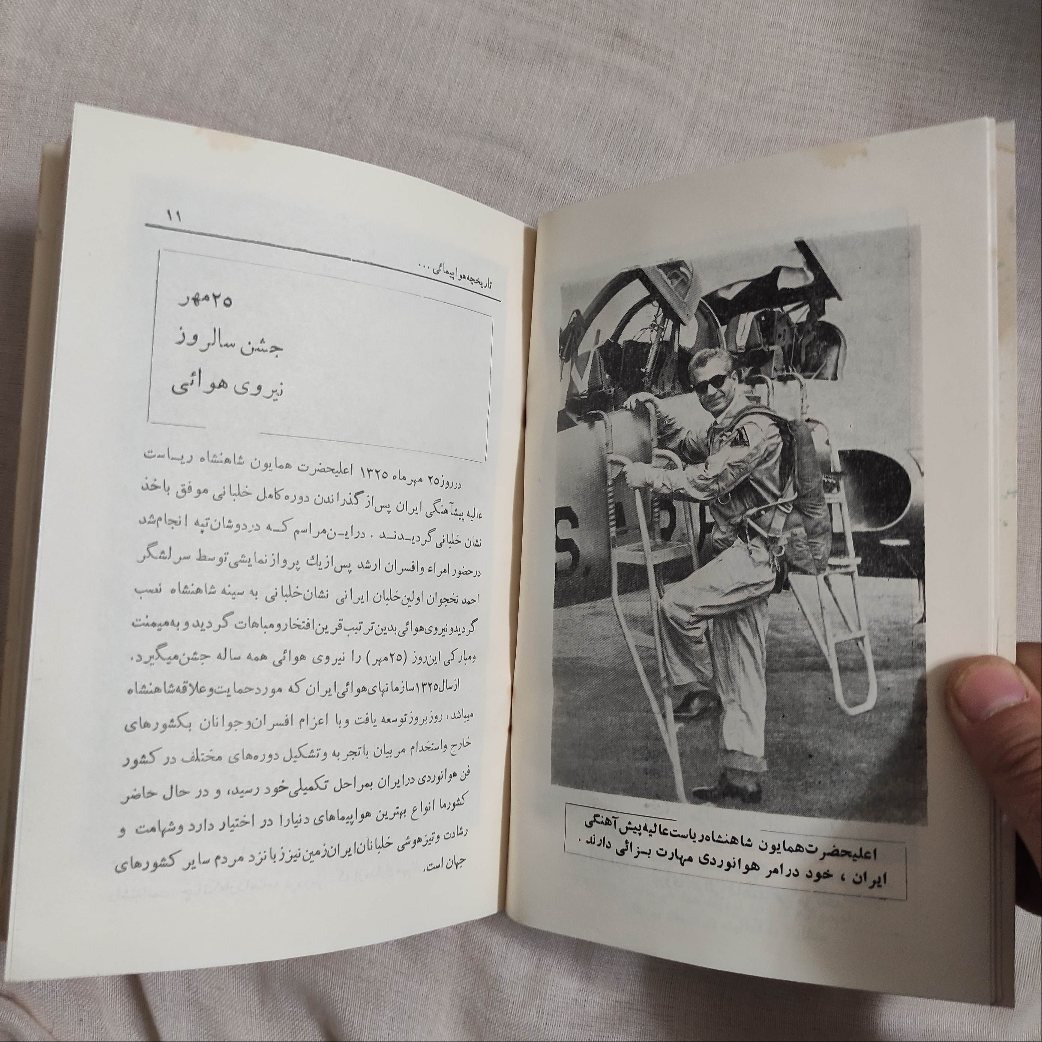 ۱۱
تاریخچه هواپیمائی ...
۲۵ مهر
جشن سالروز
نیروی هوائی
در روز ۲۵ مهر ماه ۱۳۲۵ اعلیحضرت همایون شاهنشاه ریاست
عالیه پیشآهنگی ایران پس از گذراندن دوره کامل خلبانی موفق باخذ
نشان خلبانی گردیدند . در این مراسم که در دوشان تپه انجام شد
در حضور امراء و افسران ارشد پس از یك پرواز نمایشی توسط سرلشگر
احمد نخجوان اولین خلبان ایرانی نشان خلبانی به سینه شاهنشاه نصب
گردید و نیروی هوائی بدین ترتیب قرین افتخار و مباهات گردید و به میمنت
و مبارکی این روز (۲۵ مهر) را نیروی هوائی همه ساله جشن میگیرد.
از سال ۱۳۲۵ سازمانهای هوائی ایران که مورد حمایت و علاقه شاهنشاه
میباشد، روز بروز توسعه یافت و با اعزام افسران و جوانان بکشورهای
خارج و استخدام مربیان با تجربه و تشکیل دوره‌های مختلف در کشور
فن هوانوردی در ایران بمراحل تکمیلی خود رسید، و در حال حاضر
کشور ما انواع بهترین هواپیماهای دنیا را در اختیار دارد و شهامت و
رشادت و تیزهوشی خلبانان ایران زمین نیز زبانزد مردم سایر کشورهای
جهان است.
S.
اعلیحضرت همایون شاهنشاه ریاست عالیه پیش آهنگی
ایران ، خود در امر هوانوردی مهارت بسزائی دارند .